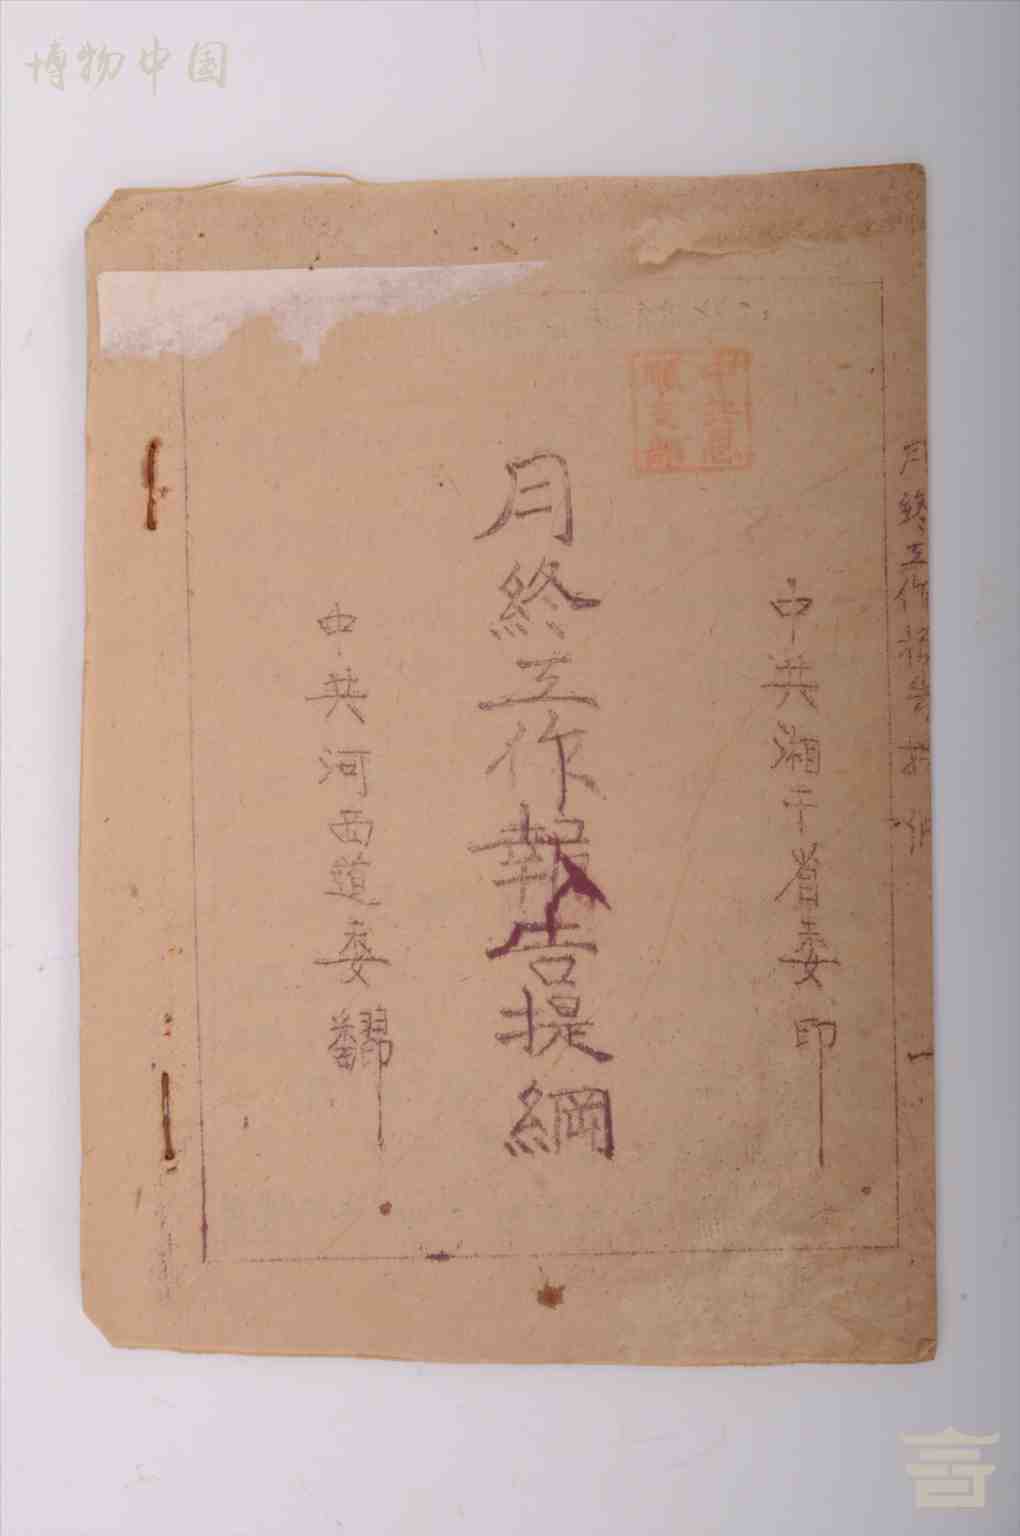 博物中国
中共湘干省委印
月終工作報告提綱
中共河西道委翻
月終工作報告提綱
一